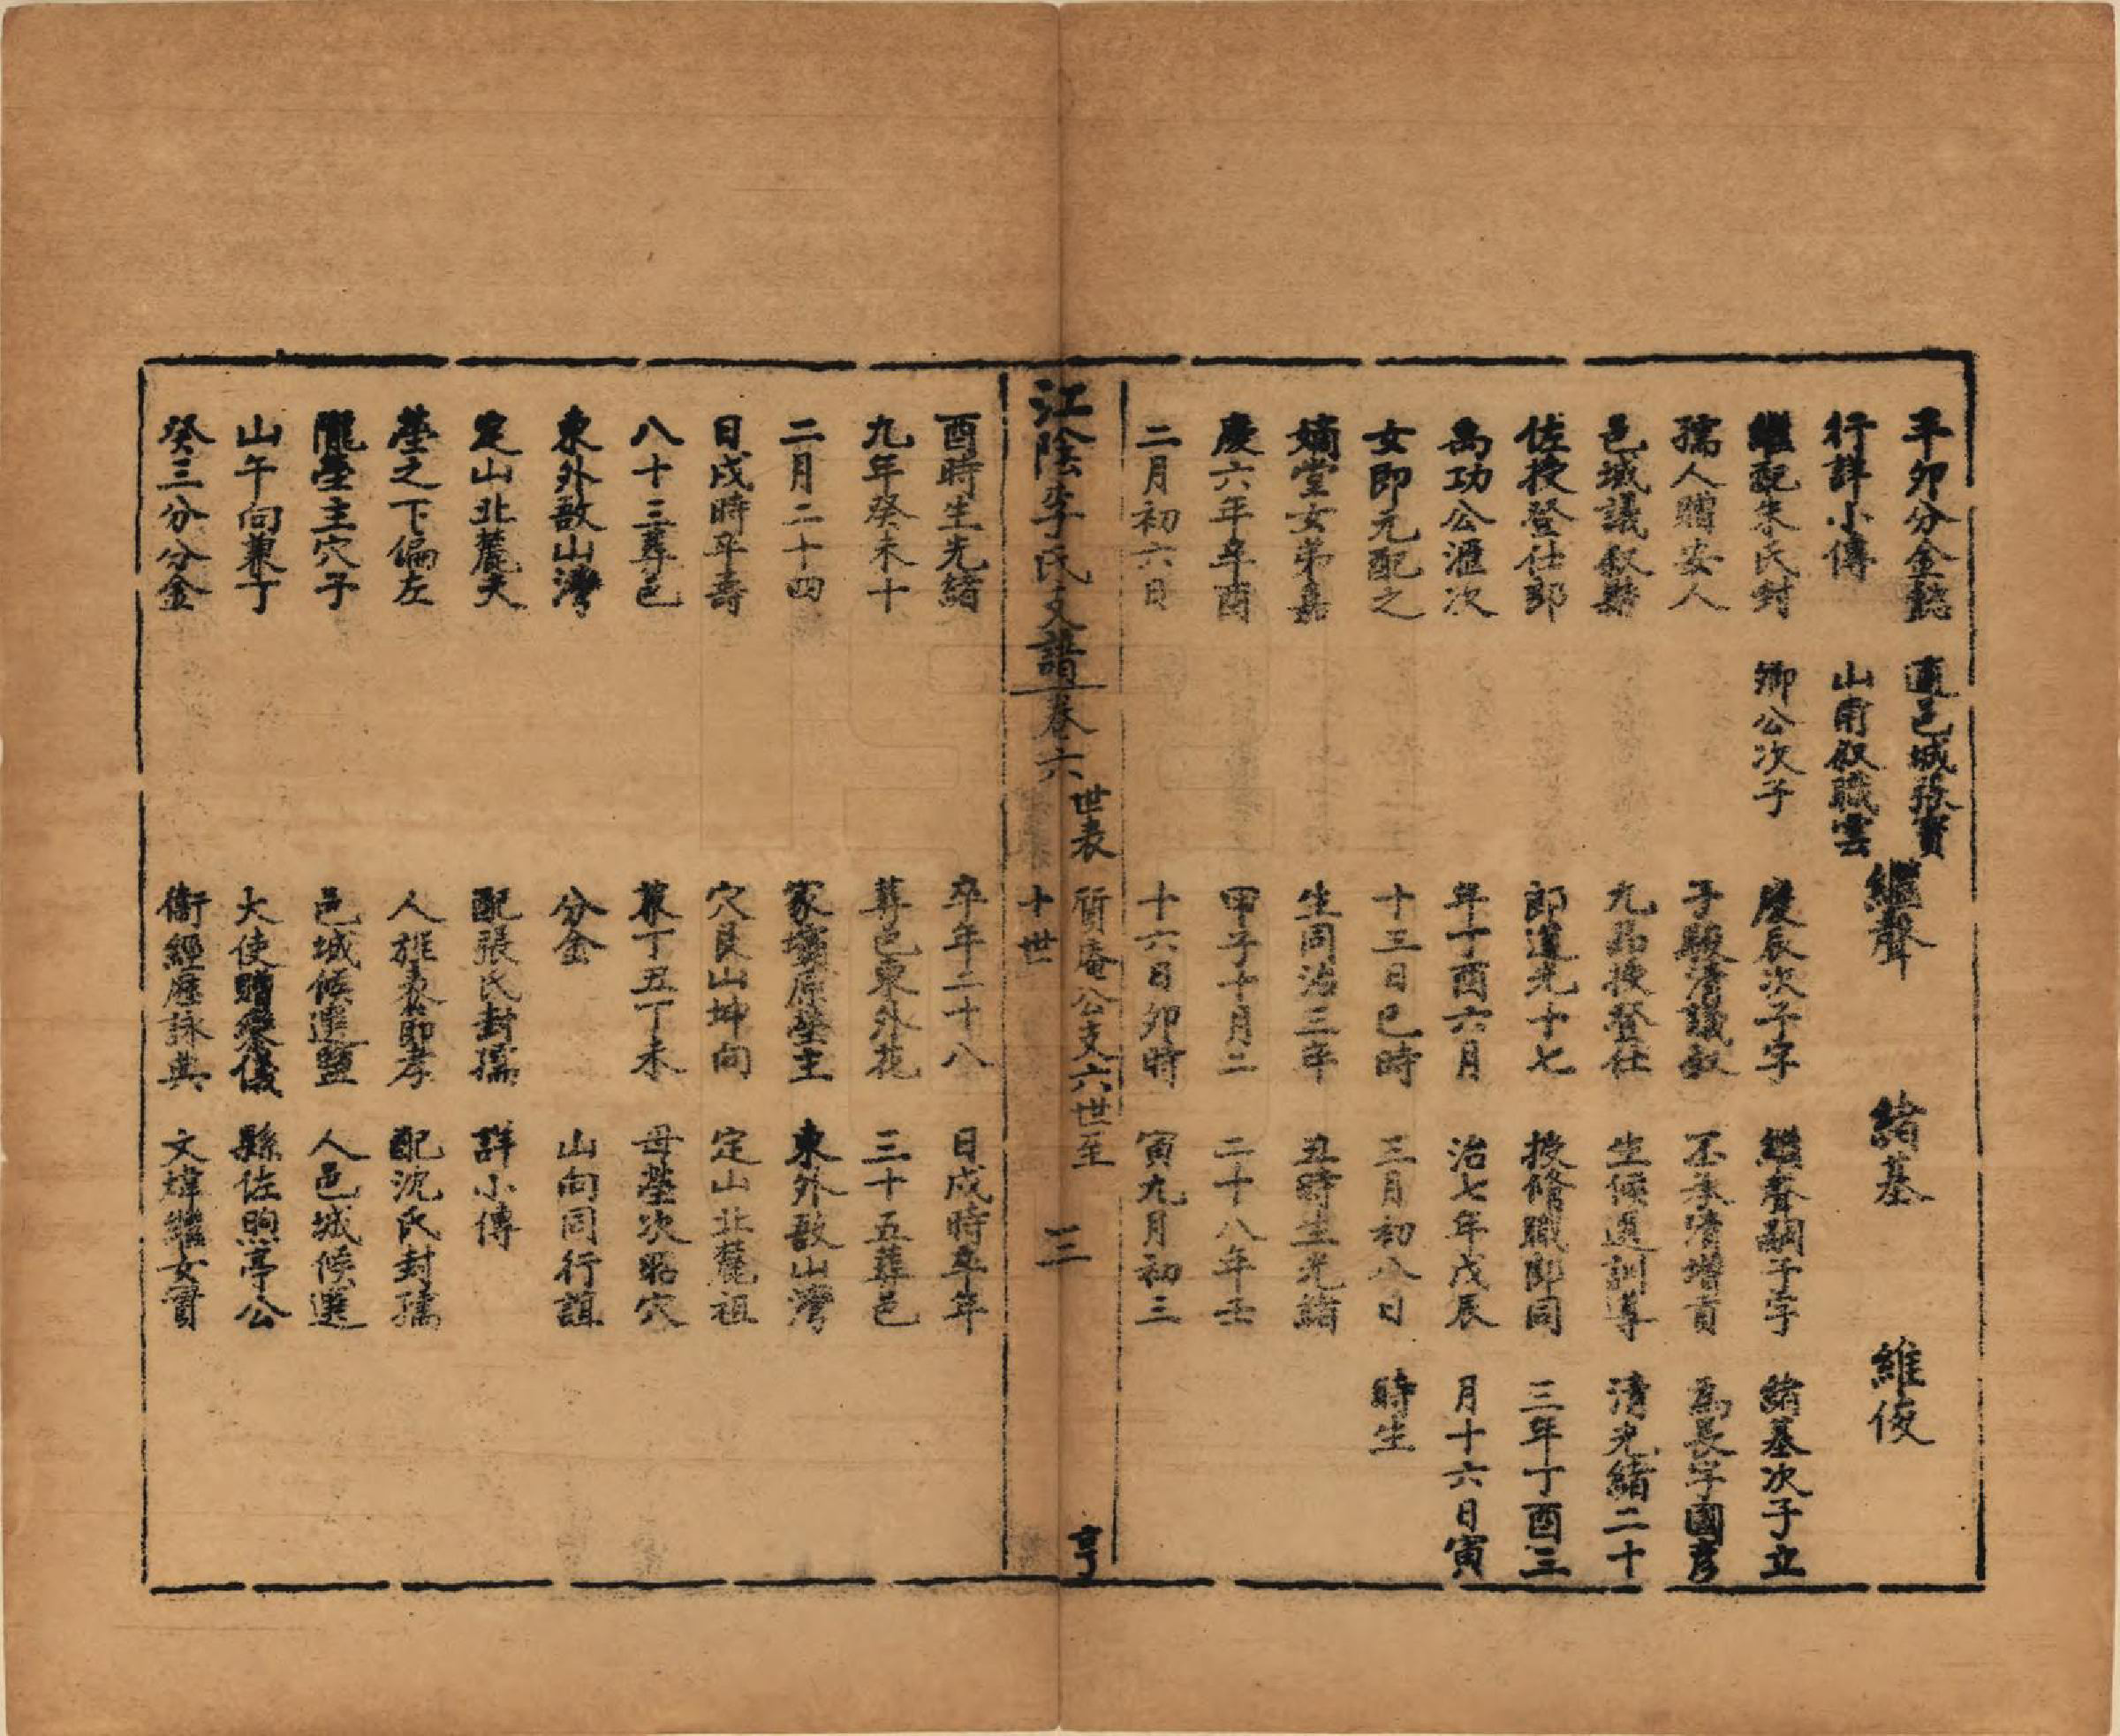 平卯分金懿
行詳小傳
繼配朱氏封
孺人贈安人
邑城議叙縣
佐授登仕郎
禹功公滙次
女即元配之
嫡堂女弟嘉
慶六年辛酉
二月初六日
酉時生光緒
九年癸未十
二月二十四
日戌時卒壽
八十三葬邑
東外敔山灣
定山北麓天
塋之下偏左
隴塋主穴子
山午向兼丁
癸三分分金
適邑城張寶
山甫叙職雲
卿公次子
繼聲
慶辰次子字
子駿清議叙
九品授登仕
郎道光十七
年丁酉六月
十三日巳時
生同治三年
甲子十月二
十六日卯時
卒年二十八
葬邑東外花
家壩原塋主
穴艮山坤向
兼丁丑丁未
分金
配張氏封孺
人旌表節孝
邑城候選鹽
大使贈鑾儀
衛經歷詠其
緒基
繼聲嗣子字
丕承清增貢
生候選訓導
授修職郎同
治七年戊辰
三月初八日
丑時生光緒
二十八年壬
寅九月初三
日戌時卒年
三十五葬邑
東外敔山灣
定山北麓祖
母塋次昭穴
山向同行誼
詳小傳
配沈氏封孺
人邑城候選
縣佐煦亭公
文煒繼女實
維俊
緒基次子立
為長字國彥
清光緒二十
三年丁酉三
月十六日寅
時生
江陰李氏支譜卷六
世表
質庵公支六世至
十世
三
亨